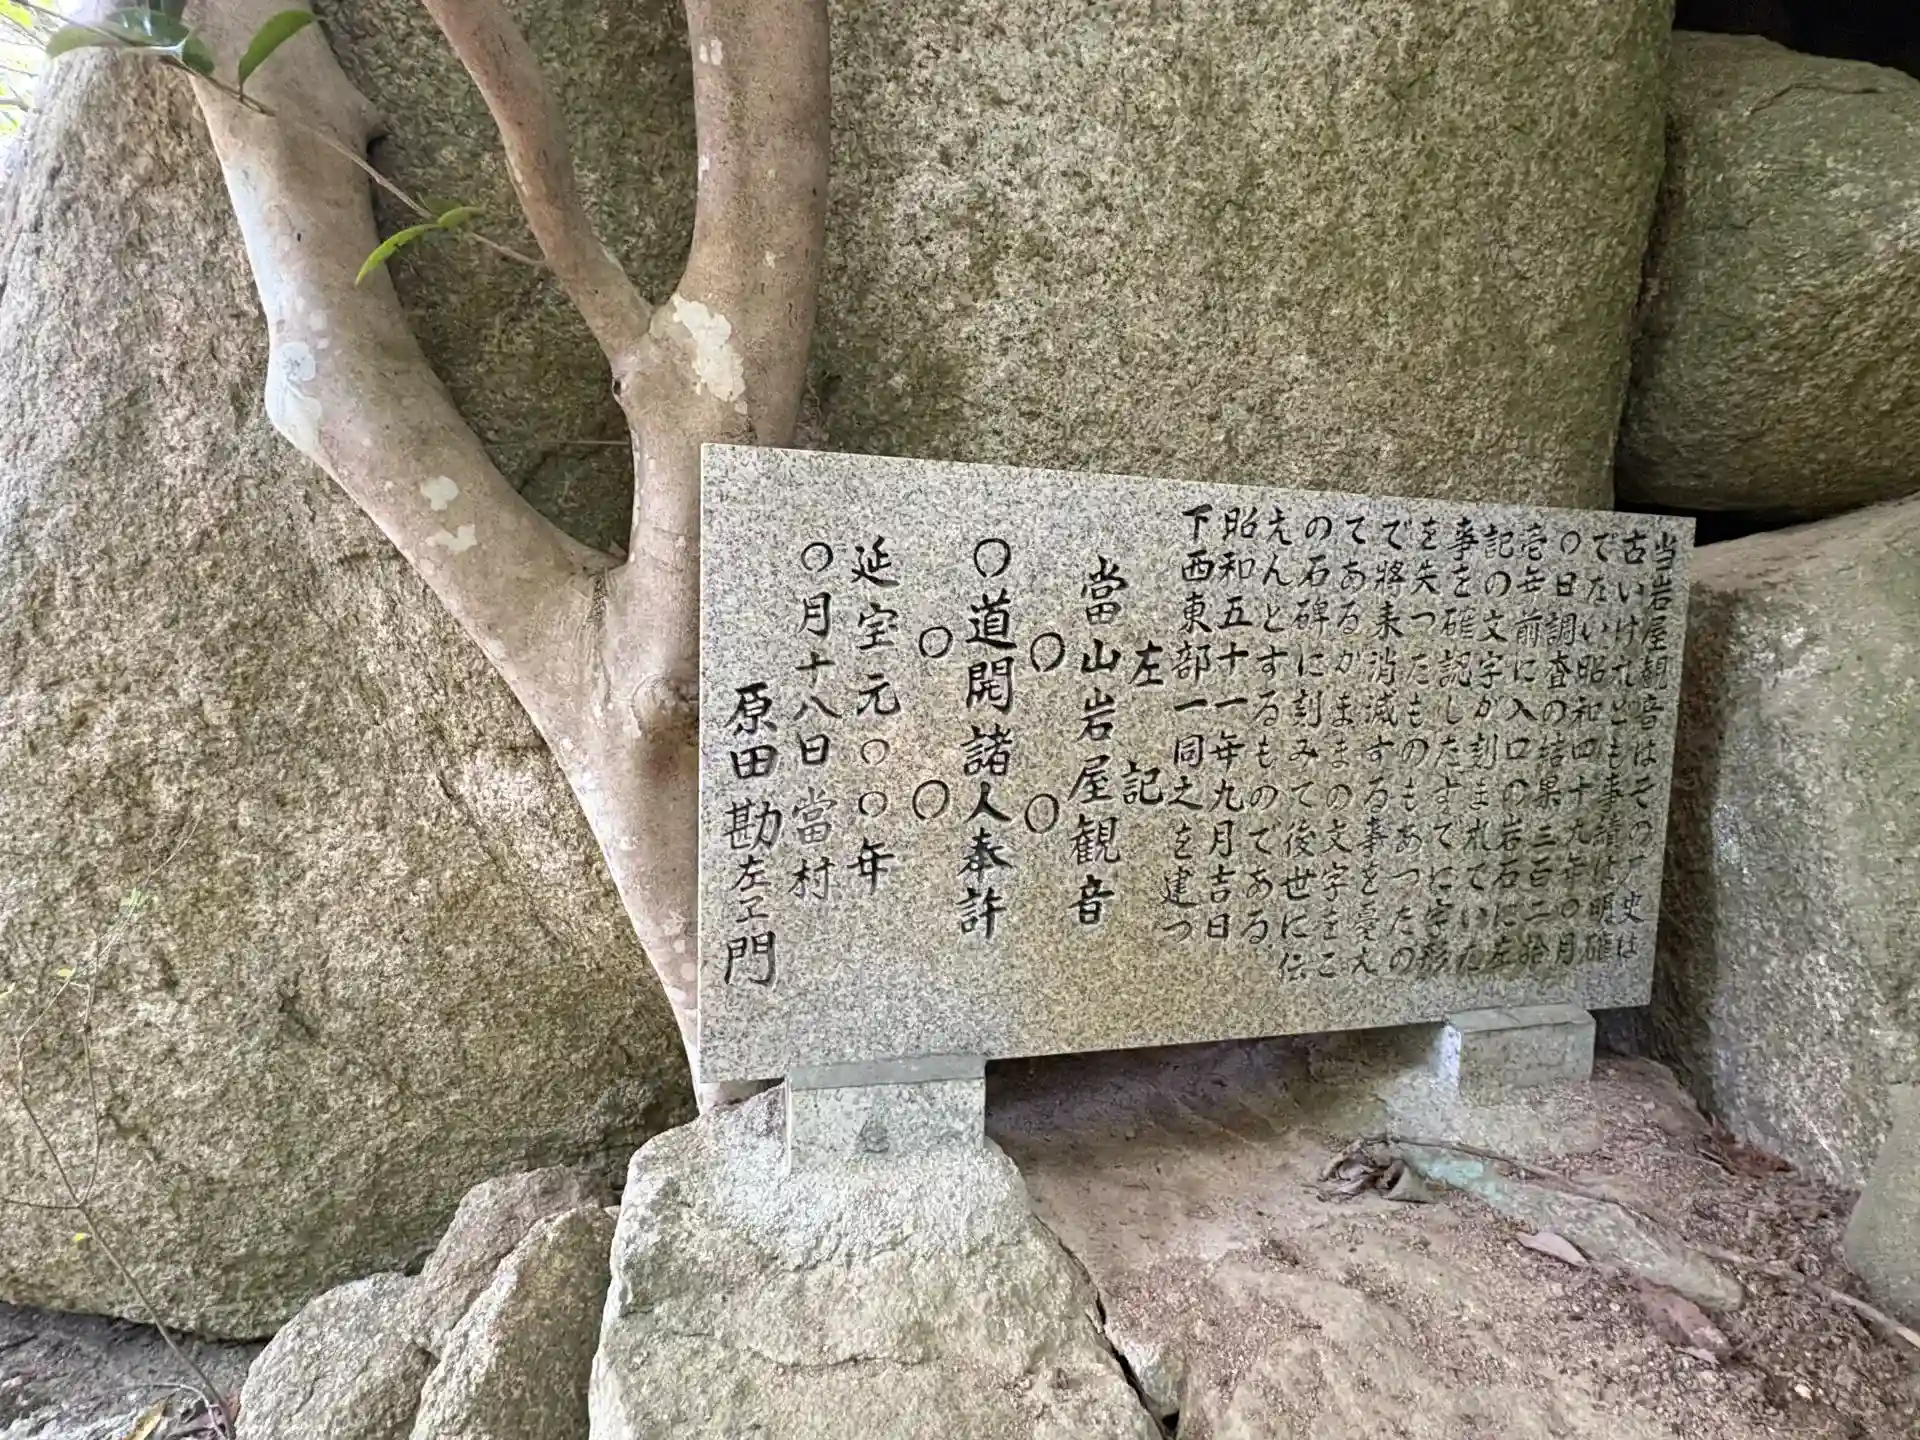 当岩屋観音はその厂史は
古いけれども事請は明確
でない昭和四十九年〇月
〇日調査の結果三百二拾
壱年前に入口の岩石に左
記の文字が刻まれていた
事を確認したすでに字形
を失つたものもあつたの
で将来消滅する事を憂え
てあるがままの文字をこ
の石碑に刻みて後世に伝
えんとするものである
昭和五十一年九月吉日
下西東部一同之を建つ
左記
當山岩屋観音
〇〇
〇道開諸人奉許
〇〇
延宝元〇〇年
〇月十八日當村
原田勘左ヱ門